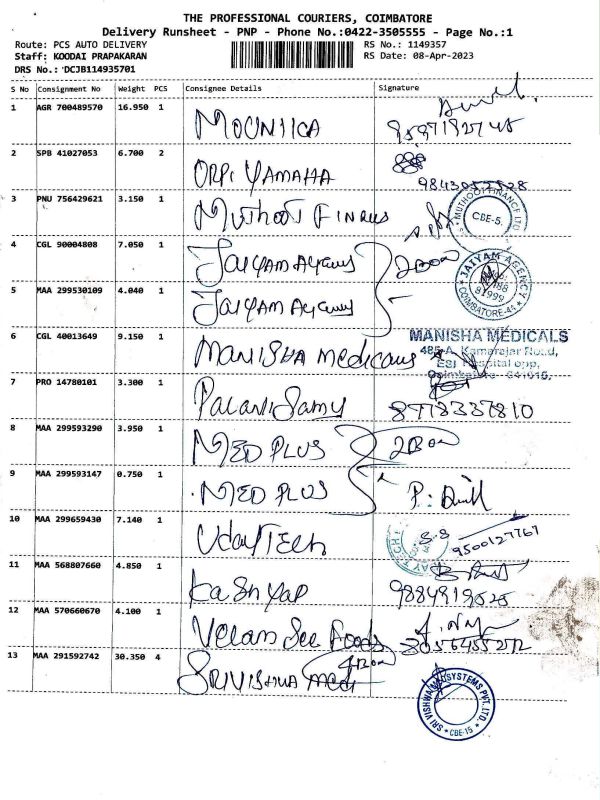 THE PROFESSIONAL COURIERS, COIMBATORE
Delivery Runsheet - PNP - Phone No.:0422-3505555 - Page No.:1
Route: PCS AUTO DELIVERY
RS No.: 1149357
Staff: KOODAI PRAPAKARAN
RS Date: 08-Apr-2023
DRS No.: DCJB114935701
S No Consignment No Weight PCS Consignee Details Signature
1 AGR 700489570 16.950 1 MOUNIICA
2 SPB 41027053 6.700 2 ORPI YAMAHA
3 PNU 756429621 3.150 1 Muthoot
MUTHOOT FINANCE LTD CBE-5.
4 CGL 90004808 7.050 1 JAIYAM Agencys 2Box
JAIYAM AGENCY COIMBATORE-44
5 MAA 299530109 4.040 1 JAIYAM Agencys
6 CGL 40013649 9.150 1 MANISHA Medicans
MANISHA MEDICALS
485-A, Kamarajar Road,
ESI Hospital opp,
Coimbatore - 641015.
7 PRO 14780101 3.300 1 PalaniSamy 8778337810
8 MAA 299593290 3.950 1 MED PLUS 2Box
9 MAA 299593147 0.750 1 MED PLUS
10 MAA 299659430 7.140 1 UdayTech 9500127767
11 MAA 568807660 4.850 1 Kashyap
12 MAA 570660670 4.100 1 Velan See Foods
13 MAA 291592742 30.350 4 SRIVISHWA Medi 4Box
SRI VISHWA SYSTEMS PVT. LTD. CBE-15